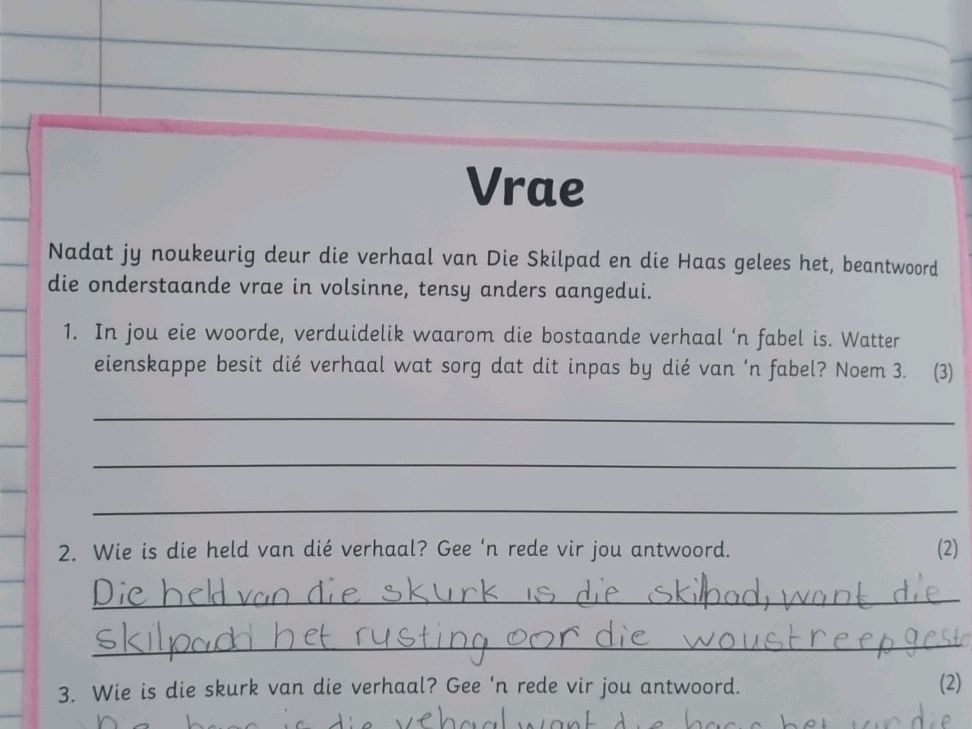 Vrae
Nadat jy noukeurig deur die verhaal van Die Skilpad en die Haas gelees het, beantwoord
die onderstaande vrae in volsinne, tensy anders aangedui.
1. In jou eie woorde, verduidelik waarom die bostaande verhaal ‘n fabel is. Watter
eienskappe besit dié verhaal wat sorg dat dit inpas by dié van ‘n fabel? Noem 3. (3)
2. Wie is die held van dié verhaal? Gee ‘n rede vir jou antwoord. (2)
Die held van die skurk is die skilpad, want die
skilpad het rusting oor die
3. Wie is die skurk van die verhaal? Gee ‘n rede vir jou antwoord. (2)
is die want die het die